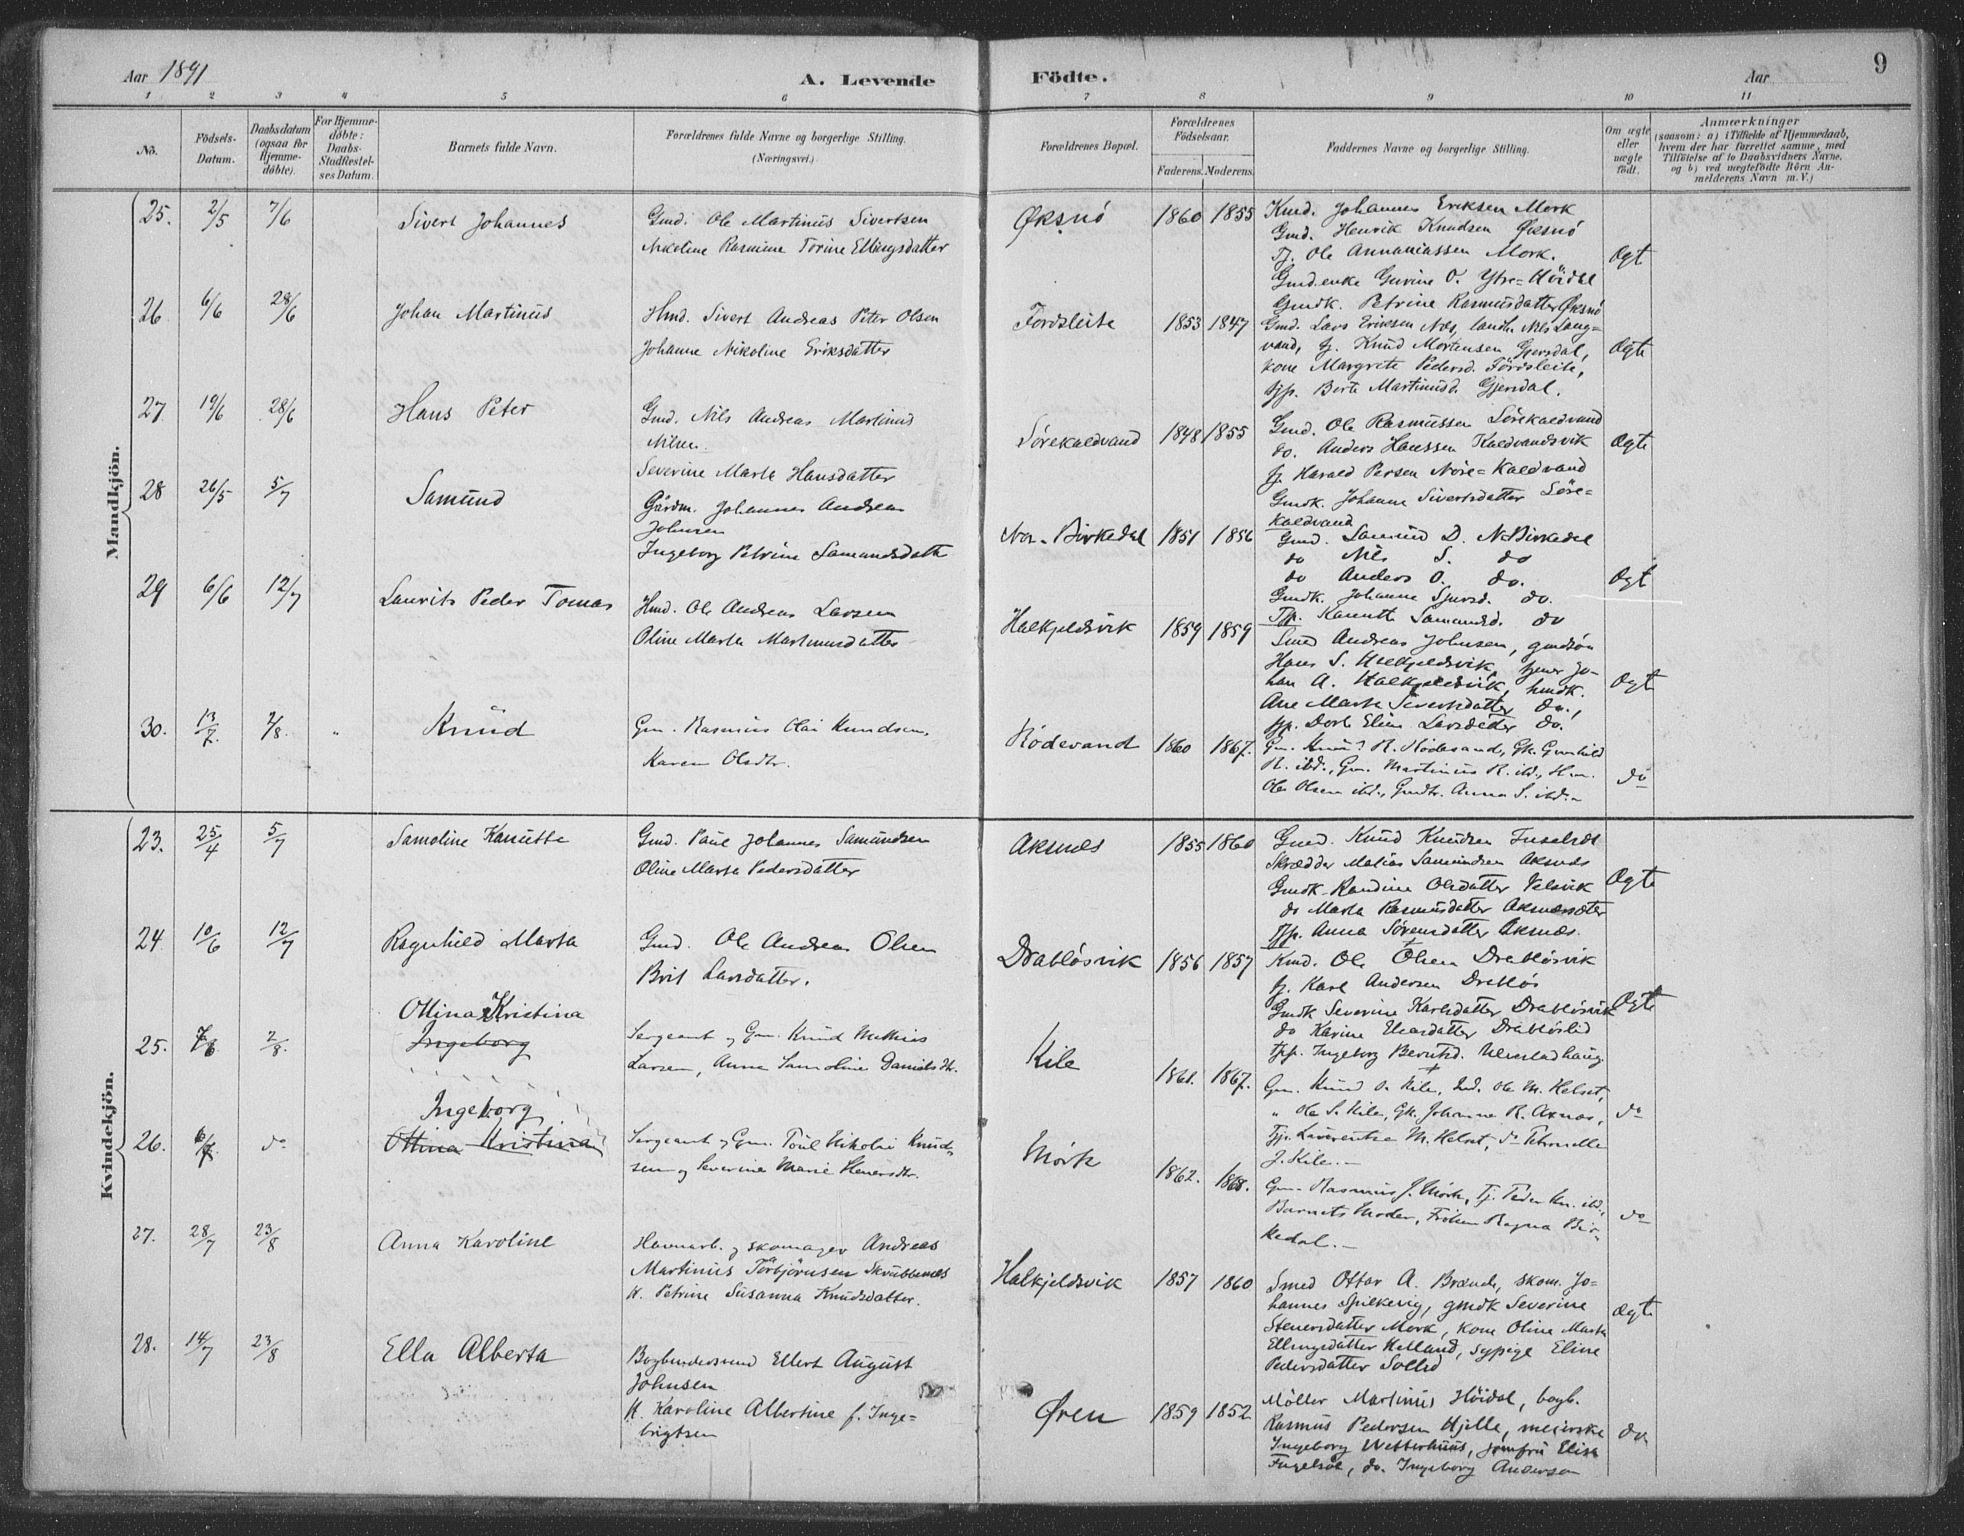 Aar 1891
A. Levende
Födte.
Aar
9
1 2 3 4 5 6 7 8 9 10 11
No.
Födsels-
Datum.
Daabsdatum
(ogsaa for
Hjemme-
døbte).
For Hjemme-
døbte:
Daabs-
Stadfæstel-
ses Datum.
Barnets fulde Navn.
Forældrenes fulde Navne og borgerlige Stilling.
(Næringsvei.)
Forældrenes Bopæl.
Forældrenes
Födselsaar.
Faderens. Moderens.
Faddernes Navne og borgerlige Stilling.
Om ægte
eller
uægte
født.
Anmærkninger
(saasom: a) i Tilfælde af Hjemmedaab,
hvem der har forrettet samme, med
Tilföielse af to Daabsvidners Navne,
og b) ved uægtefödte Börn An-
melderens Navn m. V.)
Mandkjön.
25. 2/5 7/6 Sivert Johannes
Gmd. Ole Martinus Sivertsen
Nikoline Rasmine Torine Ellingsdatter
Øksnø 1860 1855
Kmd. Johannes Eriksen Mork
Gmd. Henrik Knudsen Øksnø
Tj. Ole Annaniassen Mork.
Gmd.enke Gurine O. Ytre-Höidal
Gmdk. Petrine Rasmusdatter Øksnö
Ægt
26 6/6 28/6 Johan Martinus
Hmd. Sivert Andreas Peter Olsen
Johanne Nikoline Eriksdatter
Fordsleite 1853 1847
Gmd. Lars Eriksen Næs, landh. Nils Lang-
vand, tj. Knud Mortensen Gjersdal,
kone Margrete Pedersd. Fördsleite,
tjp. Berte Martinusd. Gjersdal.
Ægte
27. 19/6 28/6 Hans Peter
Gmd. Nils Andreas Martinus
Nilsen.
Severine Marta Hansdatter
Sörekaldvand 1848 1855
Gmd. Ole Rasmussen Sörekaldvand
do. Anders Hanssen Kaldvandsvik
tj. Harald Persen Nöre-Kaldvand
Gmdk. Johanne Sivertsdatter Söre-
kaldvand
Ægte
28 26/5 5/7 Samund
Gårdm. Johannes Andreas
Johnsen
Ingeborg Petrine Samundsdatt
Nor-Birkedal 1851 1856
Gmd. Samund D. N-Birkedal
do Nils S. do
do Anders O. do.
Gmdk. Johanne Sjursd. do.
Tjp. Kanutte Samundsd. do
Ægt
29 6/6 12/7 Laurits Peder Tomas
Hmd. Ole Andreas Larsen
Oline Marta Martinusdatter
Halkjeldsvik 1859 1859
Smed Andreas Johnsen, gmdsön
Hans S. Halkjeldsvik, tjener Jo-
han A. Halkjeldsvik, hmdk.
Ane Marta Sivertsdatter do.,
tjp. Dorte Eline Larsdatter do.
Ægt
30. 13/7 2/8. " Knud
Gm. Rasmus Olai Knudsen,
Karen Olsdtr.
Rödevand 1860 1867.
Gm. Knud R. Rödesand, Gk. Gunhild
R. ibd., Gm. Martinus R. ibd., Hm.
Ole Olsen ibd., Gmdtr. Anna S. ibd.-
do
Kvindekjön.
23. 25/4 5/7 Samoline Kanutte
Gmd. Paul Johannes Samundsen
Oline Marta Pedersdatter
Aksnæs 1855 1860
Gmd. Knud Knudsen
Skrædder Matias Samundsen Aksnæs
Gmdk. Randine Olsdatter Velsvik
do Marta Rasmusdatter Aksnæssæter
tjp. Anna Sörensdatter Aksnæs.
Ægt
24. 10/6 12/7 Ragnhild Marta
Gmd. Ole Andreas Olsen
Brit Larsdatter.
Drabløsvik 1856 1857
Kmd. Ole Olsen Drabløsvik
tj. Karl Andersen Drabløs
Gmdk Severine Karlsdatter Drabløsvik
do Karine Eliasdatter Drabløslid
tjp. Ingeborg Berntsd. Ulvestadhaug
Ægte
Ottina Kristina
25. 7/6 2/8. Ingeborg
Sergeant og Gm. Knud Mathias
Larsen, Anna Samoline Danielsdtr.
Kile 1861. 1867.
Gm. Knud O. Kile, Ole M. Helset,
" Ole S. Kile, Gk. Johanne R. Axnæs,
Tjp. Laverentse M. Helset, do Petronelle
J. Kile.-
do
Ingeborg
26. 6/7 do Ottina Kristina
Sergeant og Gm. Poul Nikolai Knud-
sen og Severine Marie Stenersdtr.
Mörk 1862. 1868.
Gm. Rasmus J. Mörk, Tj. Peder Kn. ibd.,
Barnets Moder, Fröken Ragna Bir-
kedal.-
do
27. 28/7 23/8 Anna Karoline
Havnearb. og skomager Andreas
Martinus Torbjörnsen Skrubbenæs
H. Petrine Susanna Knudsdatter.
Halkjeldsvik 1857 1860
Smed Ottar A. Brænde, skom. Jo-
hannes Spilkevig, gmdk Severine
Stenersdatter Mork, kone Oline Marta
Ellingsdatter Kelland, sypige Eline
Pedersdatter Sollid
ægt
28. 14/7 23/8 Ella Alberta
Bogbindersvend Ellert August
Johnsen
H. Karoline Albertine f. Inge-
brigtsen
Øren 1859 1852
Möller Martinus Höidal, bogb.
Rasmus Pedersen Hjelle, meierske
Ingeborg Wetterhuus, jomfru Elise
Fugelsöe, do. Ingeborg Anderson
do.